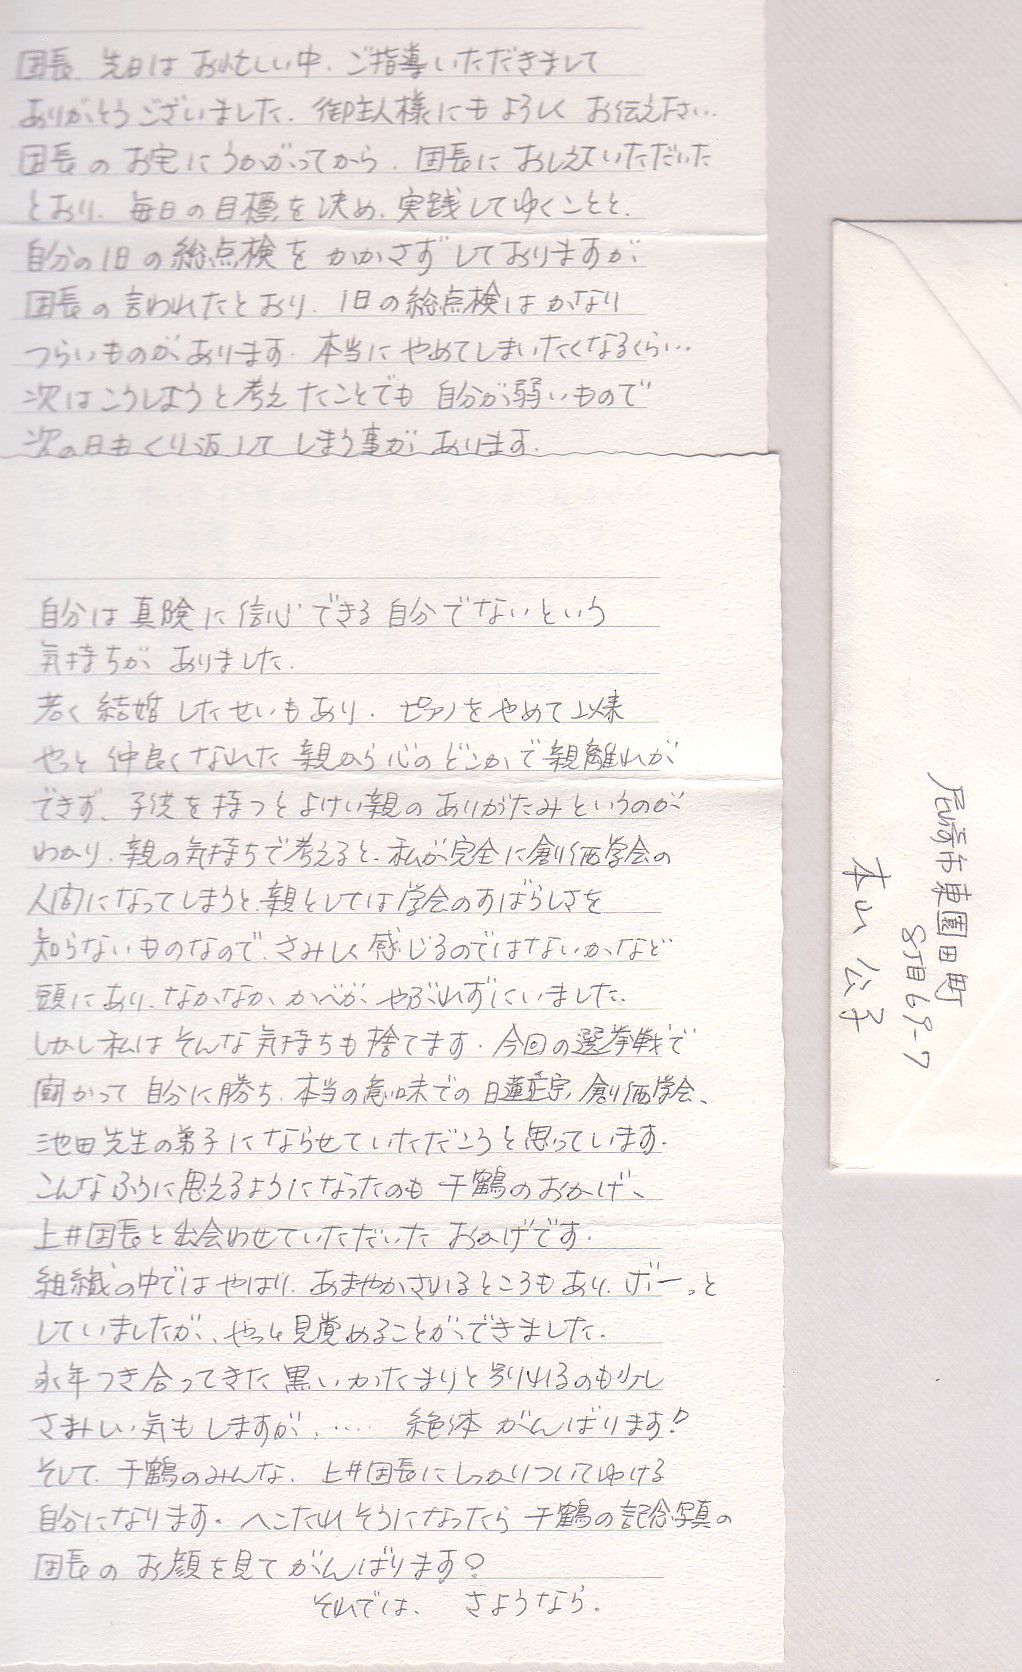 団長 先日は お忙しい中、ご指導いただきまして
ありがとうございました。御主人様にも よろしく お伝え下さい…
団長の お宅に うかがってから、団長に おしえていただいた
とおり、毎日の目標を決め、実践してゆくことと、
自分の1日の総点検を かかさず しておりますが
団長の言われたとおり、1日の総点検は かなり
つらいものが あります。本当に やめてしまいたくなるくらい…
次はこうしようと考えたことでも 自分が弱いもので
次の日も くり返して しまう事が あります。
自分は 真険に 信心できる 自分でないという
気持ちが ありました。
若く 結婚 したせいもあり、ピアノをやめて以来
やっと 仲良くなれた 親から心のどこかで親離れが
できず、子供を持つとよけい親の ありがたみというのが
わかり、親の気持ちで考えると、私が完全に創価学会の
人間になってしまうと、親としては学会のすばらしさを
知らないものなので、さみしく感じるのではないか、など
頭にあり、なかなか、かべが、やぶれずにいました。
しかし私は そんな気持ちも捨てます。今回の選挙戦で
闘かって 自分に勝ち、本当の意味での 日蓮正宗、創価学会、
池田先生の弟子に ならせていただこうと思っています。
こんなふうに思えるようになったのも 千鶴のおかげ、
上井団長と出会わせていただいた おかげです。
組織の中では やはり、あまやかされるところもあり、ボーっと
していましたが、やっと見覚めることが、できました。
永年つき合ってきた 黒いかたまりと別れるのも少し
さみしい気もしますが、…… 絶体 がんばります!
そして 千鶴のみんな、上井団長にしっかりついてゆける
自分になります。へこたれ そうになったら 千鶴の記念写真の
団長の お顔を見て がんばります!
それでは、 さようなら。
尼崎市東園田町
8丁目69-7
本山 公子